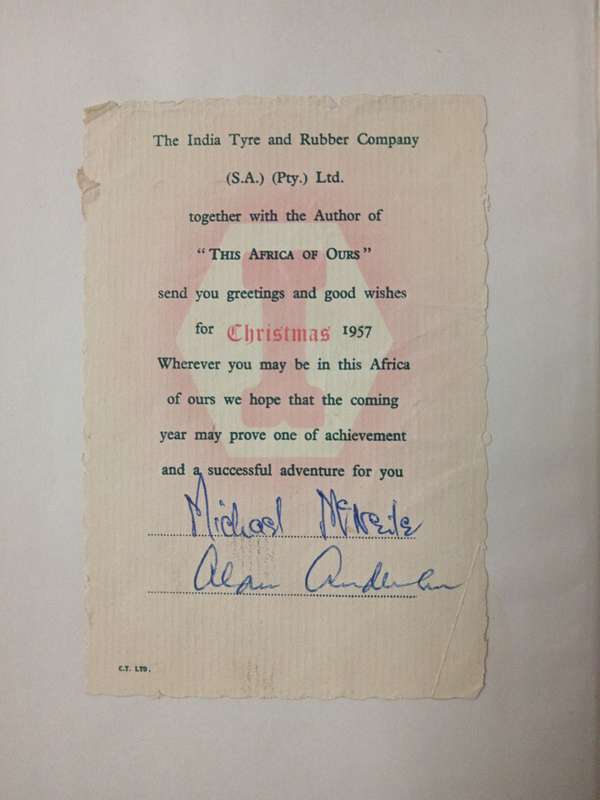 The India Tyre and Rubber Company
(S.A.) (Pty.) Ltd.
together with the Author of
“THIS AFRICA OF OURS”
send you greetings and good wishes
for Christmas 1957
Wherever you may be in this Africa
of ours we hope that the coming
year may prove one of achievement
and a successful adventure for you
Michael McNeile
Alan
C.T. LTD.